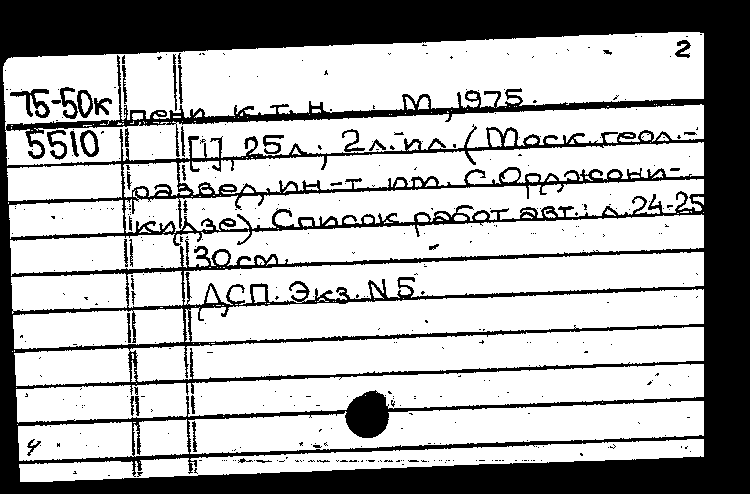 2
75-50к пени к.т.н. М., 1975.
5510 [1], 25л.; 2 л.ил. (Моск. геол.-
развед. ин-т им. С.Орджони-
кидзе). Список работ авт.: л.24-25
30 см.
ДСП. Экз. N 5.